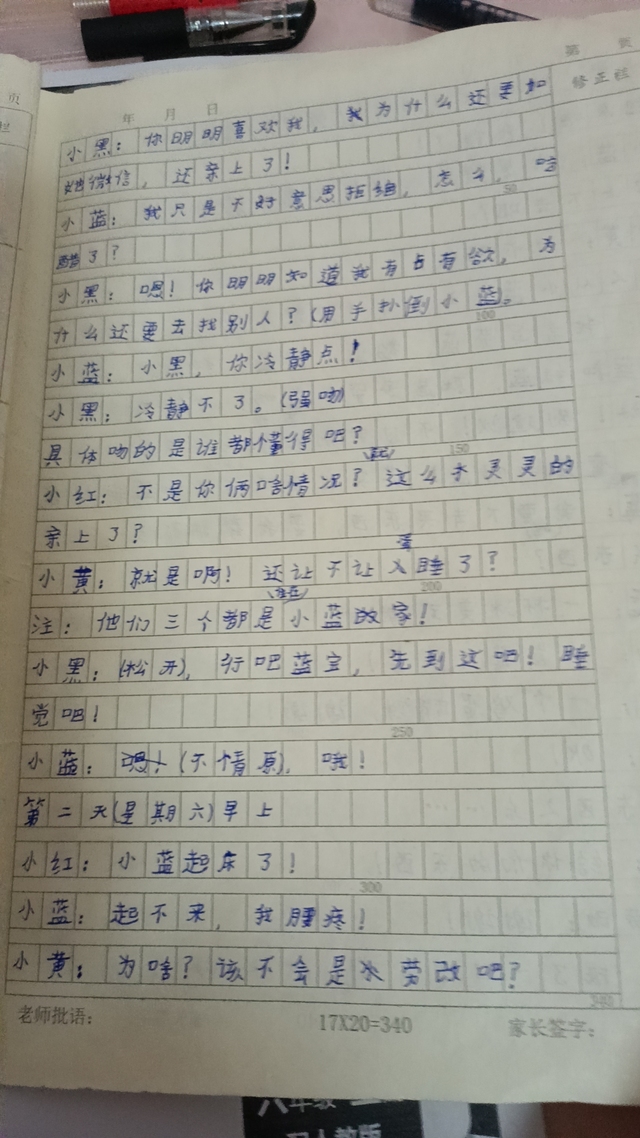 页
第 页
年 月 日
修正栏
小黑：你明明喜欢我，我为什么还要加
她微信，还亲上了！
小蓝：我只是不好意思拒绝，怎么，吃
50
醋了？
小黑：嗯！你明明知道我有占有欲，为
什么还要去找别人？(用手扑倒小蓝。
100
小蓝：小黑，你冷静点！
小黑：冷静不了。(强吻)
具体吻的是谁都懂得吧？
150
小红：不是你俩啥情况？这么水灵灵的
亲上了？
小黄：就是啊！还让不让人睡了？
200
注：他们三个都是住在小蓝家！
小黑：(松开)，行吧蓝宝，先到这吧！睡
觉吧！
250
小蓝：嗯！(不情原)，哦！
第二天(是期六)早上
小红：小蓝起床了！
300
小蓝：起不来，我腰疼！
小黄：为啥？该不会是劳改吧？
340
老师批语： 17X20=340 家长签字：